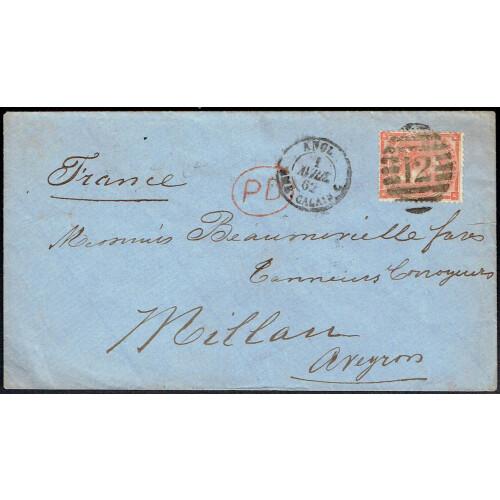 France
PD
ANGL.
1
AVRIL
62
AMB. CALAIS C
12
Messieurs Beaumevielle frères
Tanneurs Corroyeurs
Millau
Aveyron